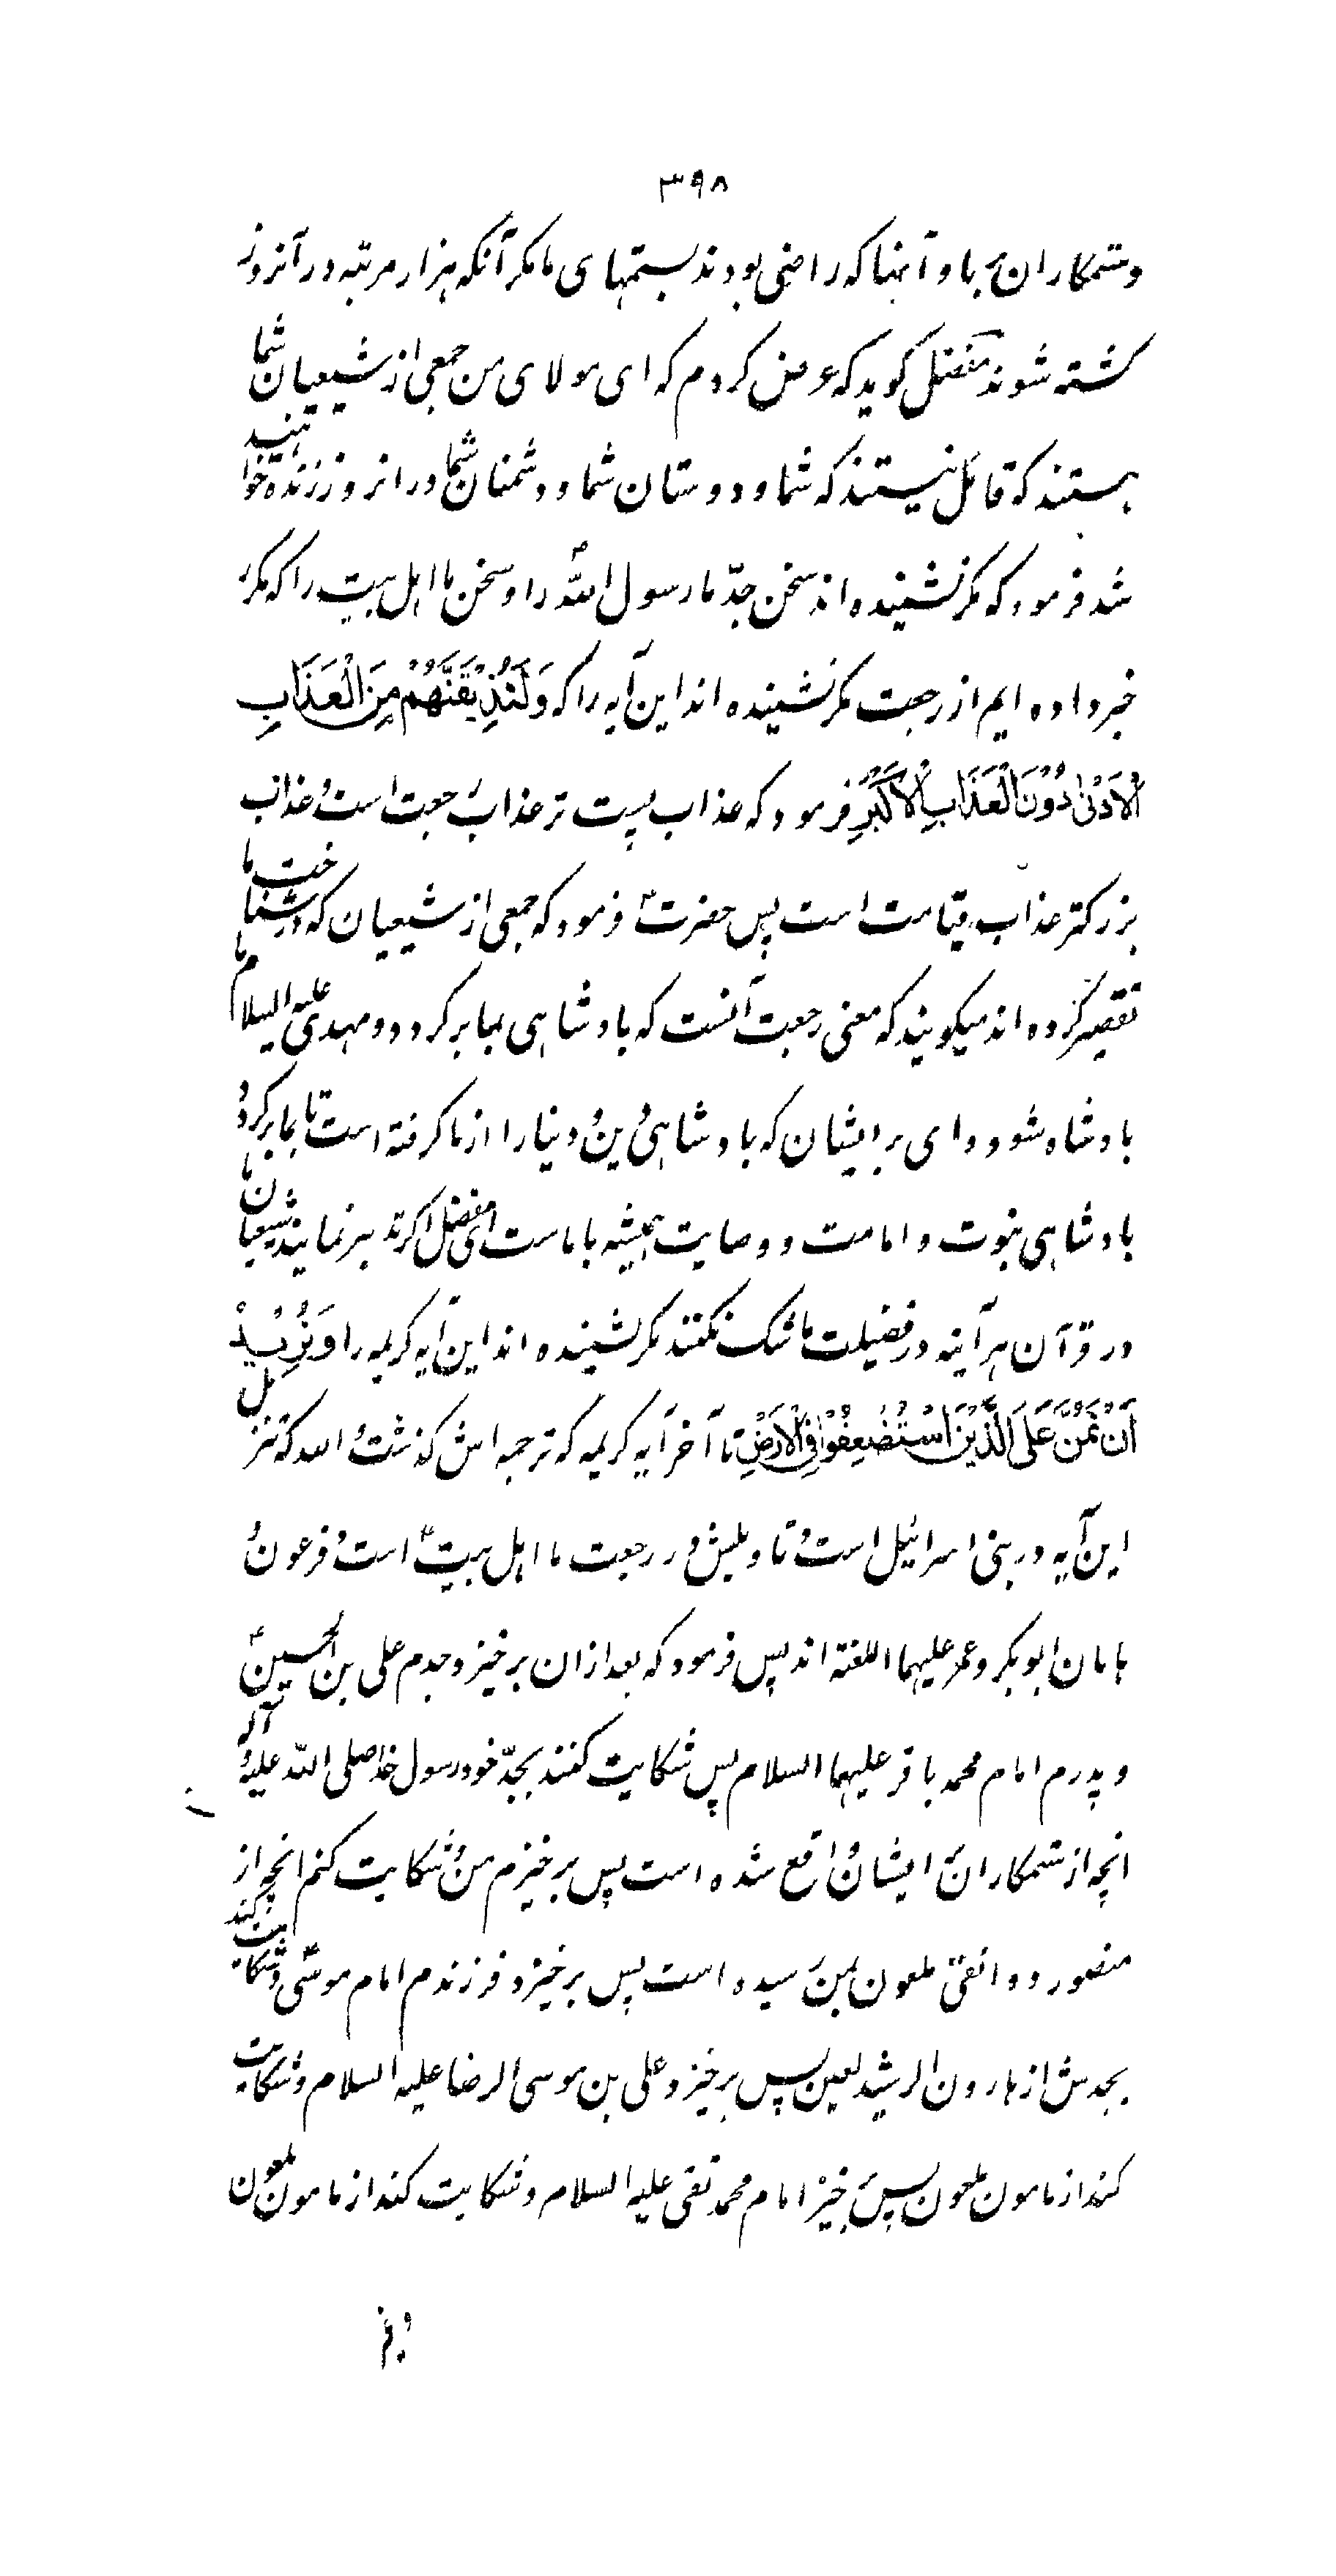 ۳۹۸
و ستمکاران بر ما و آنها که راضی بودند بستمهای ما مکر آنکه هزار مرتبه در آنروز
کشته شوند مفضل کوید که عرض کردم که ای مولای من جمعی از شیعیان شما
هستند که قائل نیستند که شما و دوستان شما و دشمنان شما در انروز زنده خواهند
شد فرمود که مکر نشنیده اند سخن جدّ ما رسول اللّه ص را و سخن ما اهل بیت را که مکرر
خبر داده ایم از رجعت مکر نشنیده اند این آیه را که وَلَنُذِیْقَنَّهُمْ مِنَ الْعَذَابِ
الْاَدْنٰی دُوْنَ الْعَذَابِ الْاَکْبَرِ فرمود که عذاب پست تر عذاب رجعت است و عذاب
بزرکتر عذاب قیامت است پس حضرت ع فرمود که جمعی از شیعیان که در شناخت ما
تقصیر کرده اند میکویند که معنی رجعت آنست که بادشاهی بما بر کردد و مهدی ما علیه السلام
بادشاه شود وای بر ایشان که بادشاهی دین و دنیا را از ما کرفته است تا بما بر کردد
بادشاهی نبوت و امامت و وصایت همیشه با ماست ای مفضل اکر تدبر نمایند شیعیان ما
در قرآن هر آینه در فضیلت ما شک نکنند مکر نشنیده اند این آیه کریمه را وَ نُرِیْدُ
اَنْ نَمُنَّ عَلَی الَّذِیْنَ اسْتُضْعِفُوْا فِی الْاَرْضِ تا آخر آیه کریمه که ترجمه اش کذشت و اللہ که تنزیل
این آیه در بنی اسرائیل است و تاویلش در رجعت ما اهل بیت ع است و فرعون و
هامان ابوبکر و عمر علیهما اللعنة اند پس فرمود که بعد از ان بر خیزد جدم علی بن الحسین ع
و پدرم امام محمد باقر علیهما السلام پس شکایت کنند بجدّ خود رسول خدا صلی اللّه علیه و آله
انچه از ستمکاران بر ایشان واقع شده است پس بر خیزم من و شکایت کنم انچه از
منصور دوانقی ملعون بمن رسیده است پس بر خیزد فرزندم امام موسی ع و شکایت کند
بجدش از هارون الرشید لعین پس بر خیزد علی بن موسی الرضا علیه السلام و شکایت
کند از مامون ملعون پس بر خیزد امام محمد تقی علیه السلام و شکایت کند از مامون ملعون